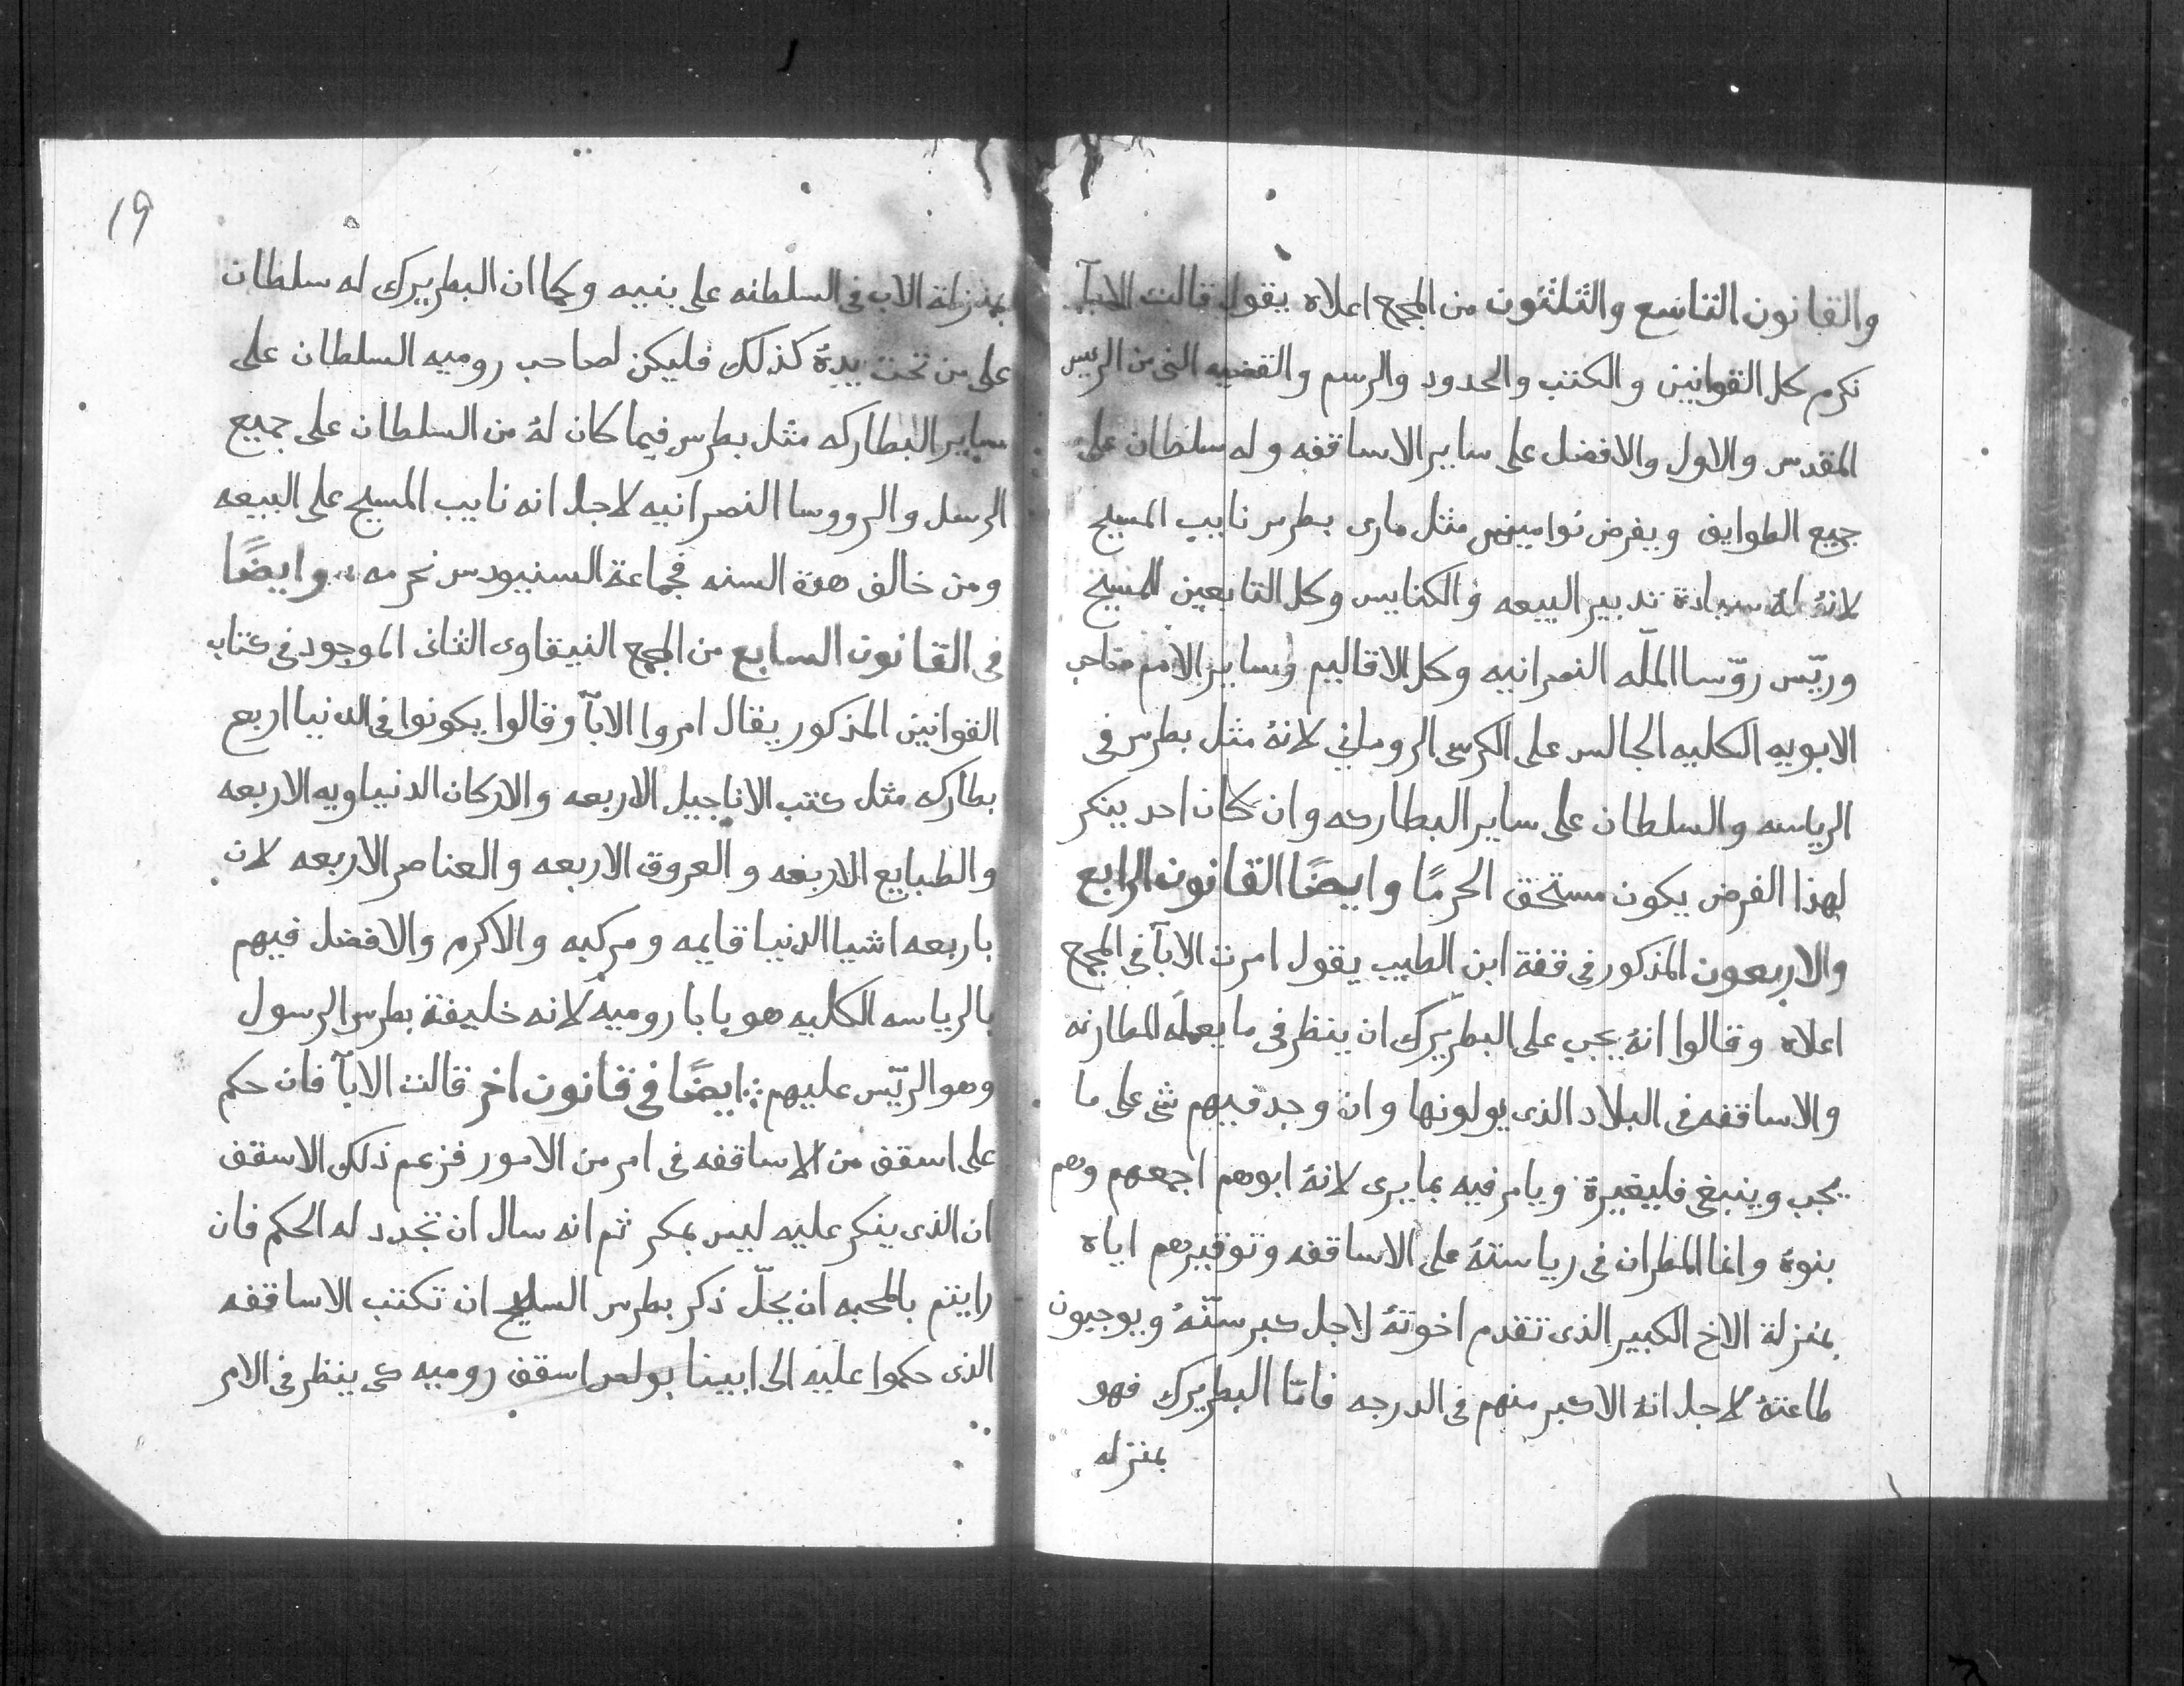 والقانون التاسع والثلثون من المجمع اعلاه يقول قالت الابآ
نكرم كل القوانين والكتب والحدود والرسم والقضيه التى من الريس
المقدس والاول والافضل على ساير الاساقفه وله سلطان على
جميع الطوايف ويفرض نواميس مثل مارى بطرس نايب المسيح
لانهُ لهُ سيادة تدبير البيعه والكنايس وكل التابعين للمسيح
وريّس روّسا الملّه النصرانيه وكل الاقاليم وساير الامم صاحب
الابويه الكليه الجالس على الكرسى الرومانى لانهُ مثل بطرس فى
الرياسه والسلطان على ساير البطاركه وان كان احد ينكر
لهذا الفرض يكون مستحق الحرمًا وايضًا القانون الرابع
والاربعون المذكور فى قفة ابن الطيب يقول امرت الابآ فى المجمع
اعلاه وقالوا انهُ يجب على البطريرك ان ينظر فى ما يعمله المطارنه
والاساقفه فى البلاد الذى يولونها وان وجد فيهم شى على ما
يجب وينبغى فليغيرهُ ويامر فيه بما يرى لانهُ ابوهم اجمعهم وهم
بنوهُ وانما المطران فى رياستهُ على الاساقفه وتوقيرهم اياه
بمنزلة الاخ الكبير الذى تقدم اخوتهُ لاجل كبر سنّهُ ويوجبون
طاعتهُ لاجل انهُ الاكبر منهم فى الدرجه فامّا البطريرك فهو
بمنزله
19
بمنزلة الاب فى السلطنه على بنيه وكما ان البطريرك له سلطان
على من تحت يدهُ كذلك فليكن لصاحب روميه السلطان على
ساير البطاركه مثل بطرس فيما كان لهُ من السلطان على جميع
الرسل والرووسا النصرانيه لاجل انه نايب المسيح على البيعه
ومن خالف هدة السنه فجماعة السنيودس نحرمه وايضًا
فى القانون السابع من المجمع النيقاوى الثانى الموجود فى كتاب
القوانين المذكور يقال امروا الابآ وقالوا يكونوا فى الدنيا اربع
بطاركه مثل كتب الاناجيل الاربعه والاركان الدنياويه الاربعه
والطبايع الاربعه والعروق الاربعه والعناصر الاربعه لان
باربعه اشيا الدنيا قايمه ومركبه والاكرم والافضل فيهم
بالرياسه الكليه هو بابا روميه لانه خليفة بطرس الرسول
وهو الريّس عليهم ايضًا فى قانون اخر قالت الابآ فان حكم
على اسقف من الاساقفه فى امر من الامور فزعم ذلك الاسقف
ان الذى ينكر عليه ليس بمكر ثم انه سال ان تجدد له الحكم فان
رايتم بالمحبه ان يجلّ ذكر بطرس السليح ان تكتب الاساقفه
الذى حكموا عليه الى ابينا بولس اسقف روميه كى ينظر فى الامر